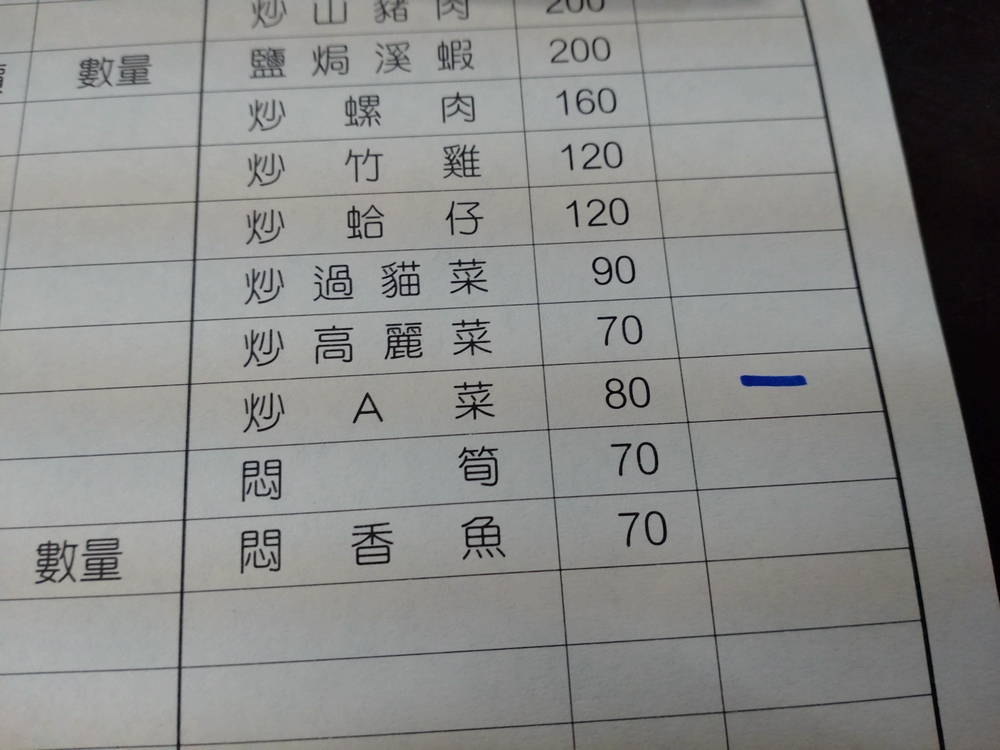 炒山豬肉 200
數量 鹽焗溪蝦 200
炒螺肉 160
炒竹雞 120
炒蛤仔 120
炒過貓菜 90
炒高麗菜 70
炒A菜 80 一
悶筍 70
數量 悶香魚 70